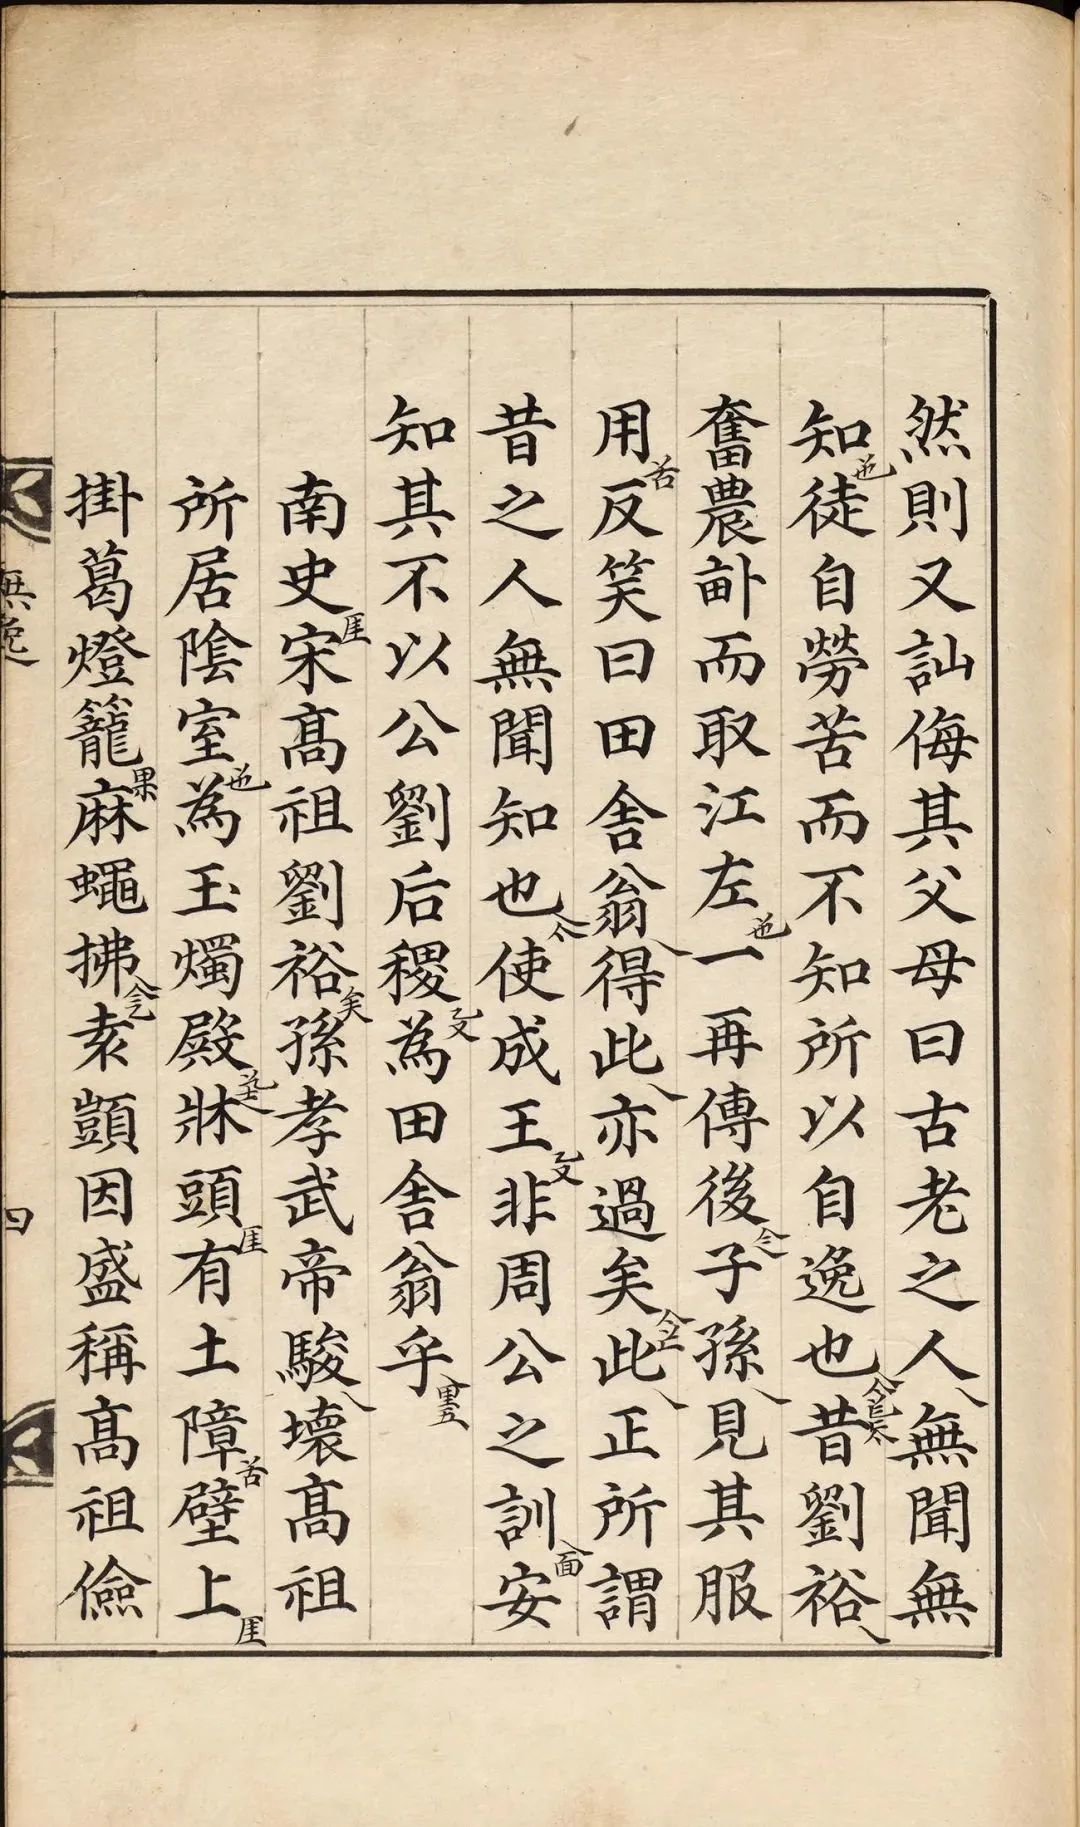 然則又訕侮其父母曰古老之人無聞無
知徒自勞苦而不知所以自逸也昔劉裕
奮農畝而取江左一再傳後子孫見其服
用反笑曰田舍翁得此亦過矣此正所謂
昔之人無聞知也使成王非周公之訓安
知其不以公劉后稷為田舍翁乎
南史宋高祖劉裕孫孝武帝駿壞高祖
所居陰室為玉燭殿牀頭有土障壁上
掛葛燈籠麻蠅拂袁顗因盛稱高祖儉
無逸
四